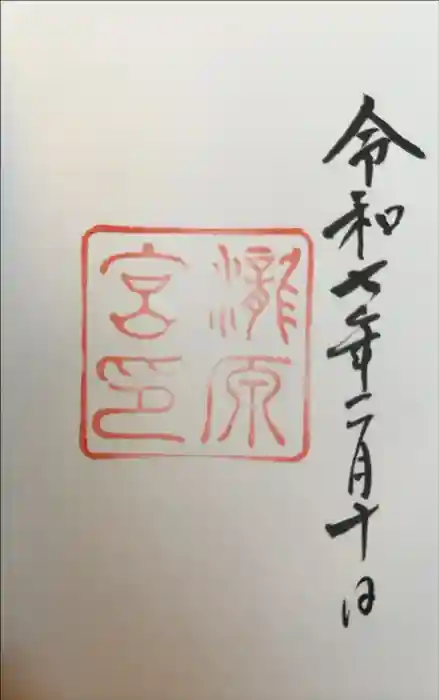 令和七年二月十日
瀧原
宮印